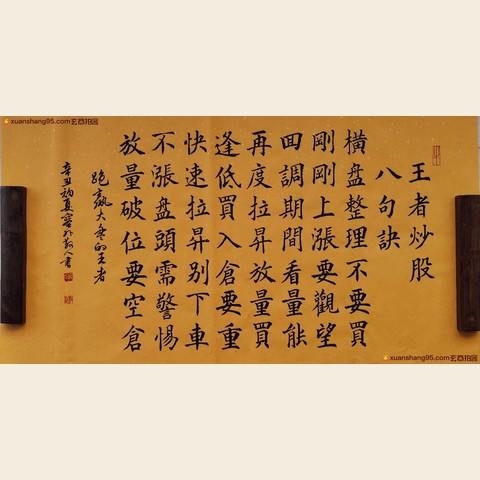 王者炒股
八句訣
橫盤整理不要買
剛剛上漲要觀望
回調期間看量能
再度拉昇放量買
逢低買入倉要重
快速拉昇别下車
不漲盤頭需警惕
放量破位要空倉
跑贏大盘的王者
辛丑初夏
xuanshang95.com玄商拍客
xuanshang95.com玄商拍客